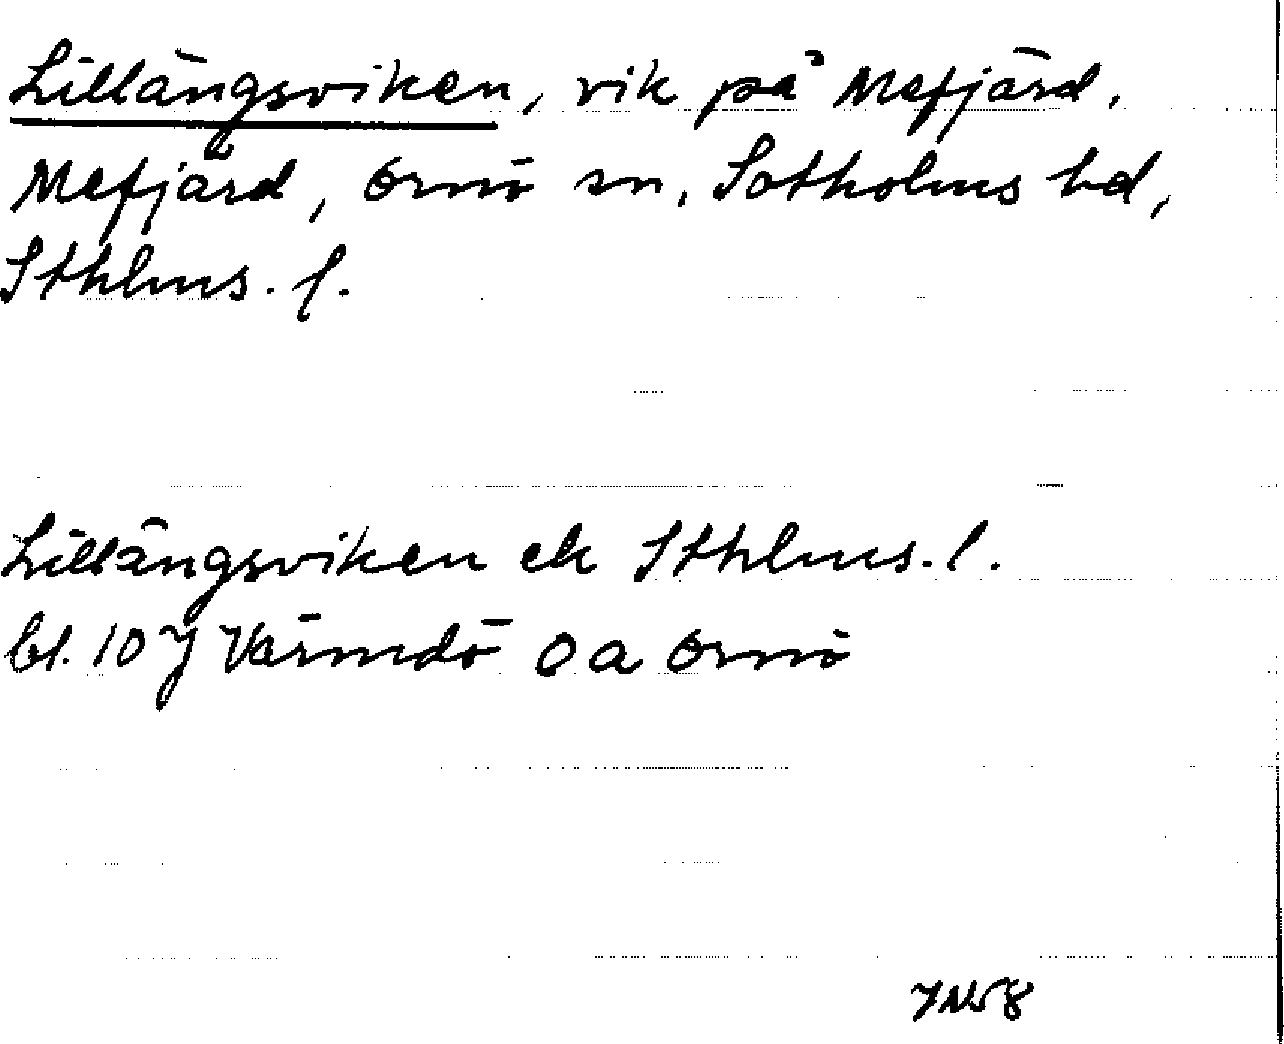 Lillängsviken, vik på Mefjärd.
Mefjärd, Ornö sn, Sotholms hd,
Sthlms. l.
Lillängsviken ek Sthlms. l.
bl. 10 J Värmdö O a Ornö